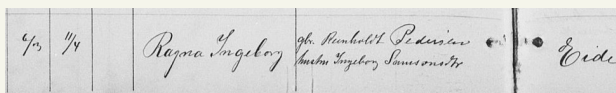 6/3 11/4 Ragna Ingeborg gbr. Reinholdt Pedersen Eide
hustru Ingeborg Samsonsdtr